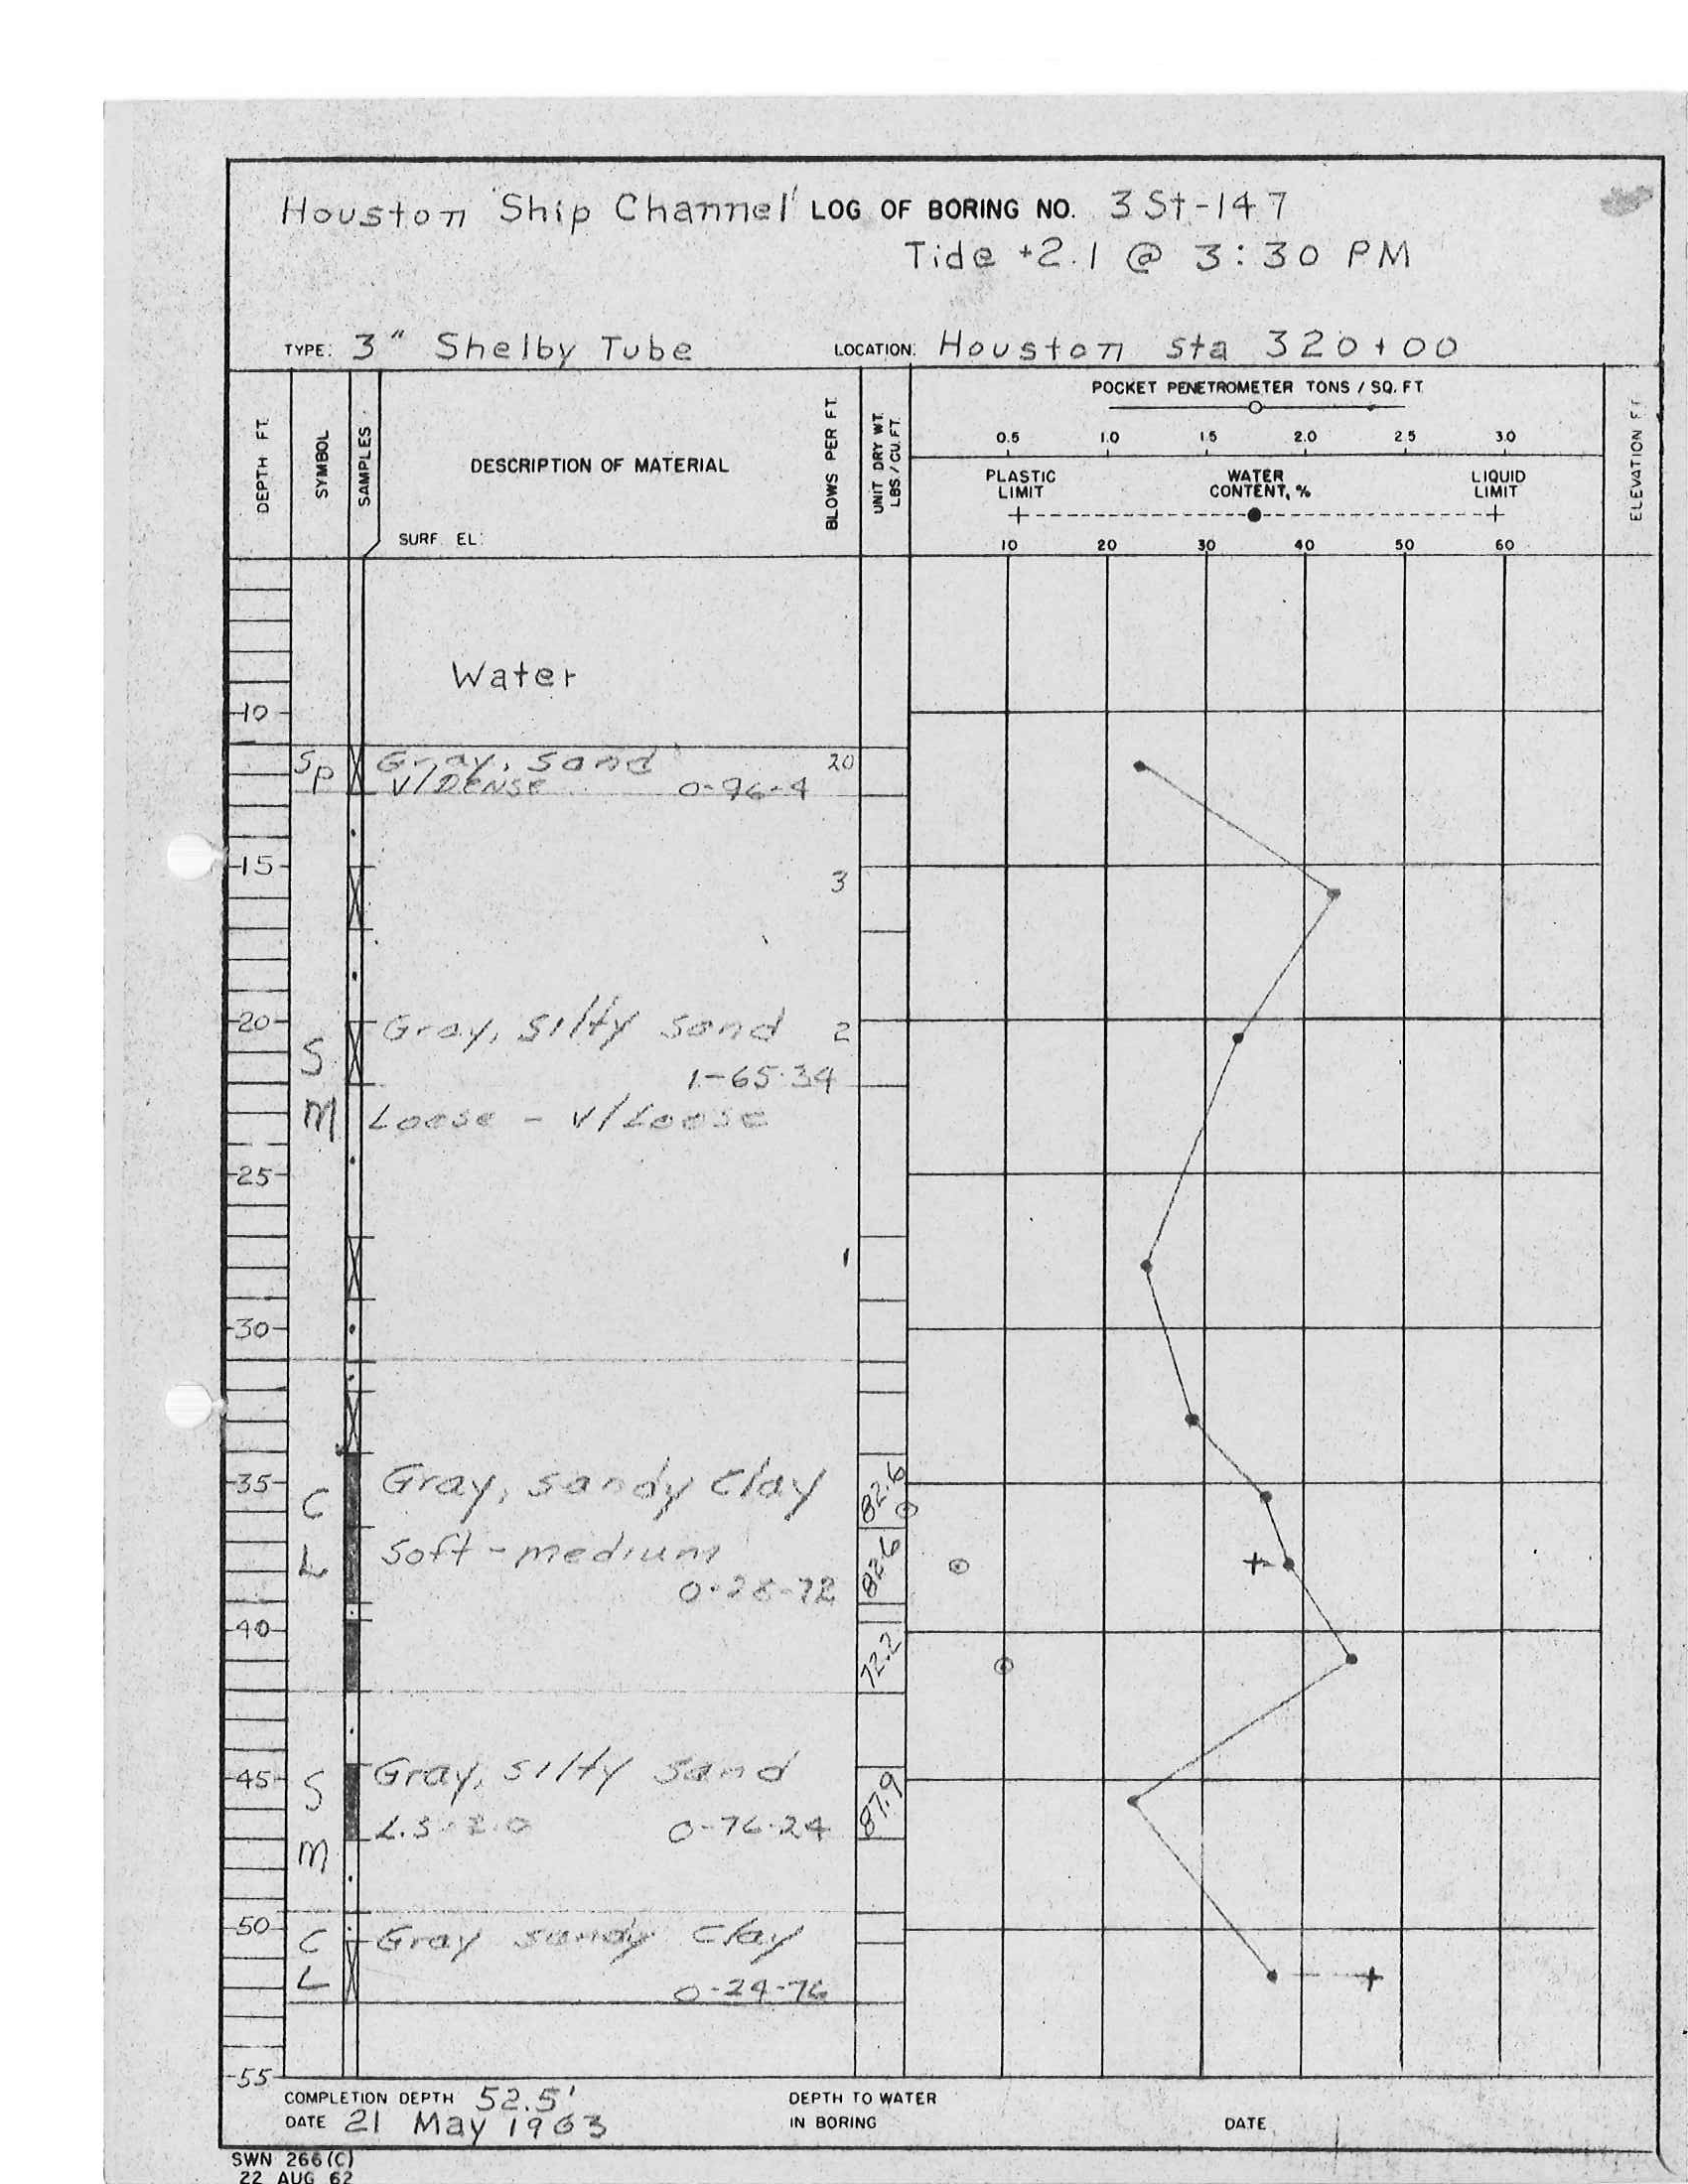 Houston Ship Channel LOG OF BORING NO. 3St-147
Tide +2.1 @ 3:30 PM
TYPE: 3" Shelby Tube LOCATION: Houston Sta 320+00
DEPTH FT.
SYMBOL
SAMPLES
DESCRIPTION OF MATERIAL
SURF. EL:
BLOWS PER FT.
UNIT DRY WT.
LBS./CU.FT.
POCKET PENETROMETER TONS / SQ. FT.
0.5 1.0 1.5 2.0 2.5 3.0
PLASTIC LIMIT
WATER CONTENT, %
LIQUID LIMIT
10 20 30 40 50 60
ELEVATION FT.
Water
10
SP Gray, sand 20
V/DENSE 0-96-4
15
3
20 Gray, silty sand 2
SM
1-65-34
Loose - V/Loose
25
1
30
35 Gray, sandy clay 82.6
CL
Soft-medium 82.6
0-28-72
40
72.2
45 Gray, silty sand 87.9
SM
0-76-24
50
CL Gray sandy clay
0-24-76
55
COMPLETION DEPTH 52.5'
DATE 21 May 1963
DEPTH TO WATER
IN BORING
DATE
SWN 266(C)
22 AUG 62